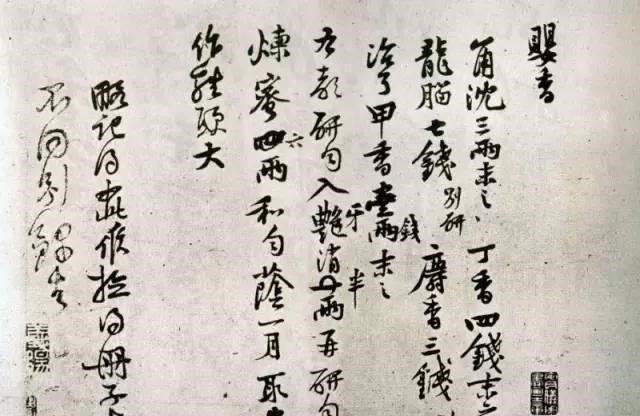 賏香
角沈三兩末之丁香四錢末
龍腦七錢別研麝香三錢
治了甲香壹兩錢末之
右都研勻入牙艷消兩半再研勻
煉蜜四六兩和勻蔭一月取
作雞頭大
略記得此候檢得冊子
不同別錄去